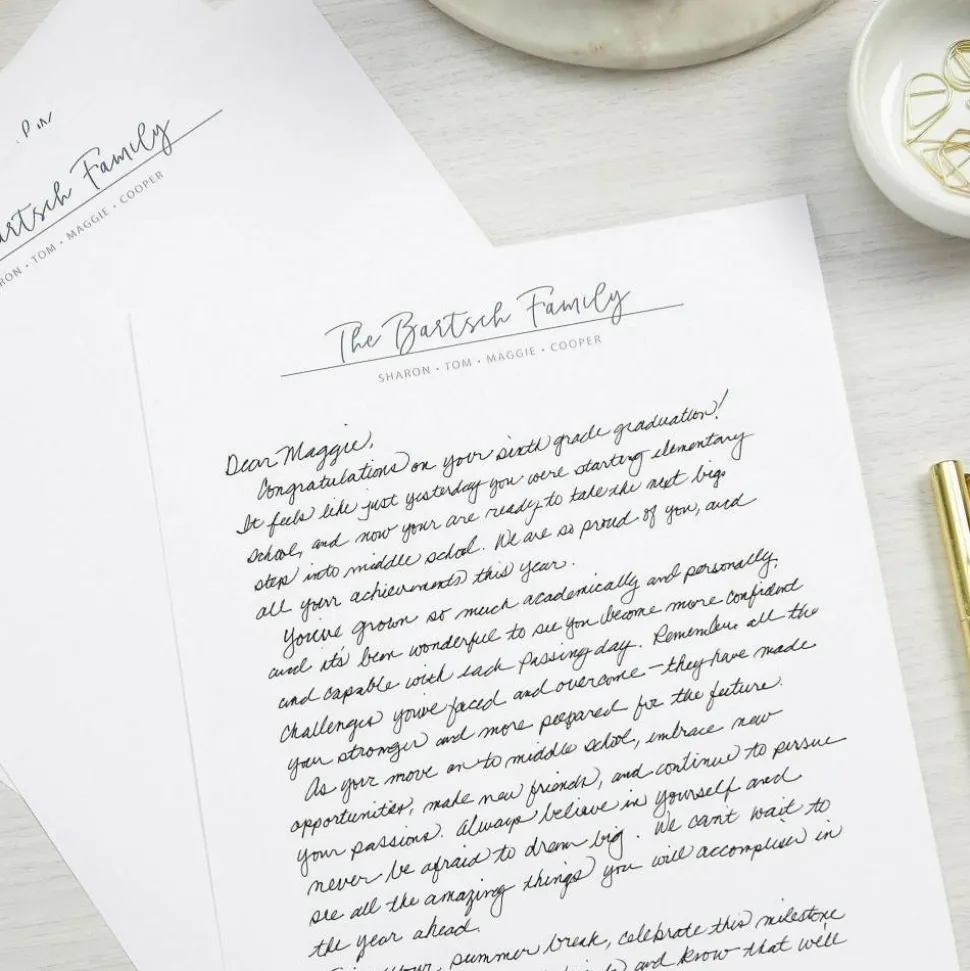 Bartsch Family
SHARON • TOM • MAGGIE • COOPER
The Bartsch Family
SHARON • TOM • MAGGIE • COOPER
Dear Maggie,
Congratulations on your sixth grade graduation!
It feels like just yesterday you were starting elementary
school, and now your are ready to take the next big
step into middle school. We are so proud of you, and
all your achievements this year.
You've grown so much academically and personally,
and it's been wonderful to see you become more confident
and capable with each passing day. Remember all the
challenges you've faced and overcome — they have made
your stronger and more prepared for the future.
As your move on to middle school, embrace new
opportunities, make new friends, and continue to persue
your passions. Always believe in yourself and
never be afraid to dream big. We can't wait to
see all the amazing things you will accomplish in
the year ahead.
your summer break, celebrate this milestone
and know that we'll